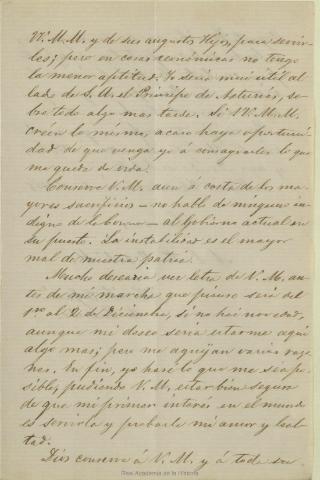 VV. M.M. y de sus augustos Hijos, para servir-
les; pero en cosas económicas no tengo
la menor aptitud. Yo seria mui útil al
lado de S. A. el Príncipe de Asturias, so-
bre todo algo mas tarde. Si VV. M.M.
creen lo mismo, acaso haya oportuni-
dad de que venga yo á consagrarles lo que
me quede de vida.
Conserve V. M. aun á costa de los ma-
yores sacrificios — no hablo de ninguno in-
digno de la Corona — al Gobierno actual en
su puesto. La instabilidad es el mayor
mal de nuestra patria.
Mucho desearia ver letra de V. M. an-
tes de mi marcha que pienso será del
1º al 2 de Diciembre, si no hai novedad,
aunque mi deseo seria estarme aquí
algo mas; pero me aquejan varias razo-
nes. En fin, yo haré lo que me sea po-
sible, pudiendo V. M. estar bien segura
de que mi primer interés en el mundo
es servirla y probarle mi amor y leal-
tad.
Dios conserve á V. M. y á toda su
Real Academia de la Historia